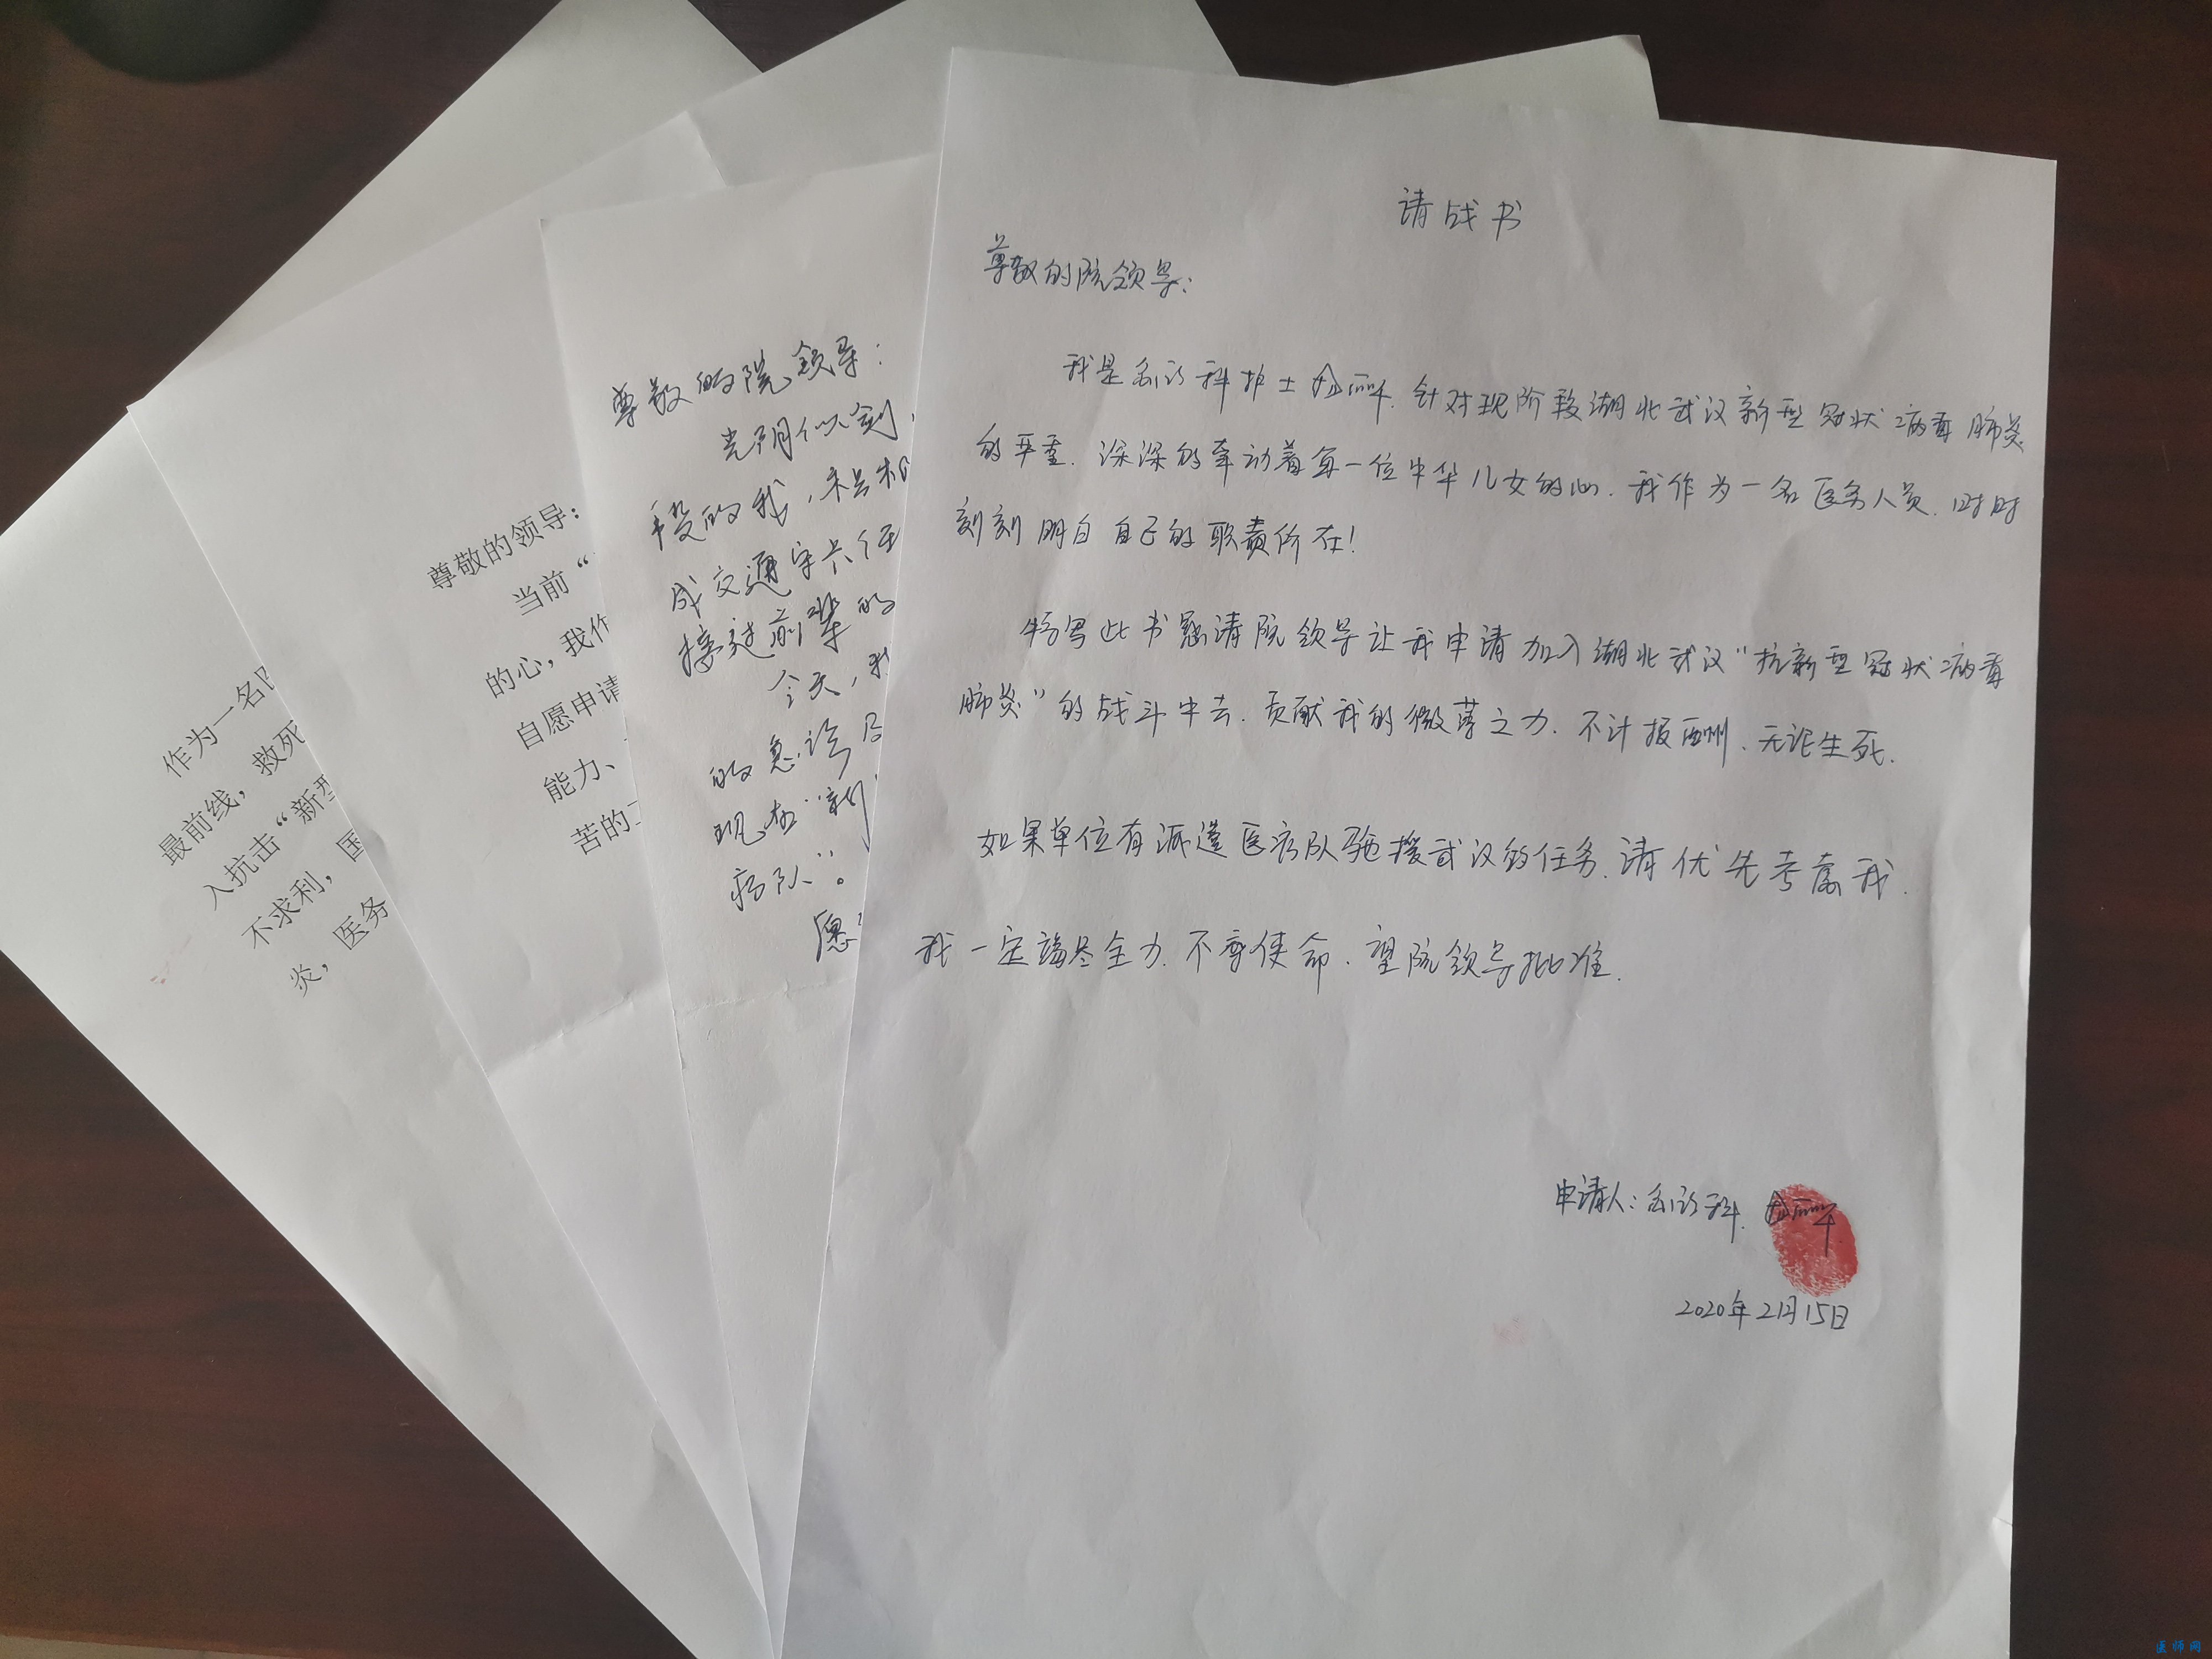 请战书
尊敬的院领导：
我是急诊科护士 针对现阶段湖北武汉新型冠状病毒肺炎
的严重.深深的牵动着每一位中华儿女的心.我作为一名医务人员.时时
刻刻明白自己的职责所在！
特写此书恳请院领导让我申请加入湖北武汉“抗新型冠状病毒
肺炎”的战斗中去.贡献我的微薄之力.不计报酬.无论生死.
如果单位有派遣医疗队驰援武汉的任务.请优先考虑我.
我一定竭尽全力.不辱使命.望院领导批准.
申请人：急诊科.
2020年2月15日
尊敬的院领导：
光阴似剑，
段的我，
成交通
接过前辈的
今天，我
的急诊及
现在“新
疗队”。
愿
尊敬的领导：
当前“
的心，我作
自愿申请
能力、
苦的工
作为一名
最前线，救死
入抗击“新型
不求利，医
炎，医务
医师网